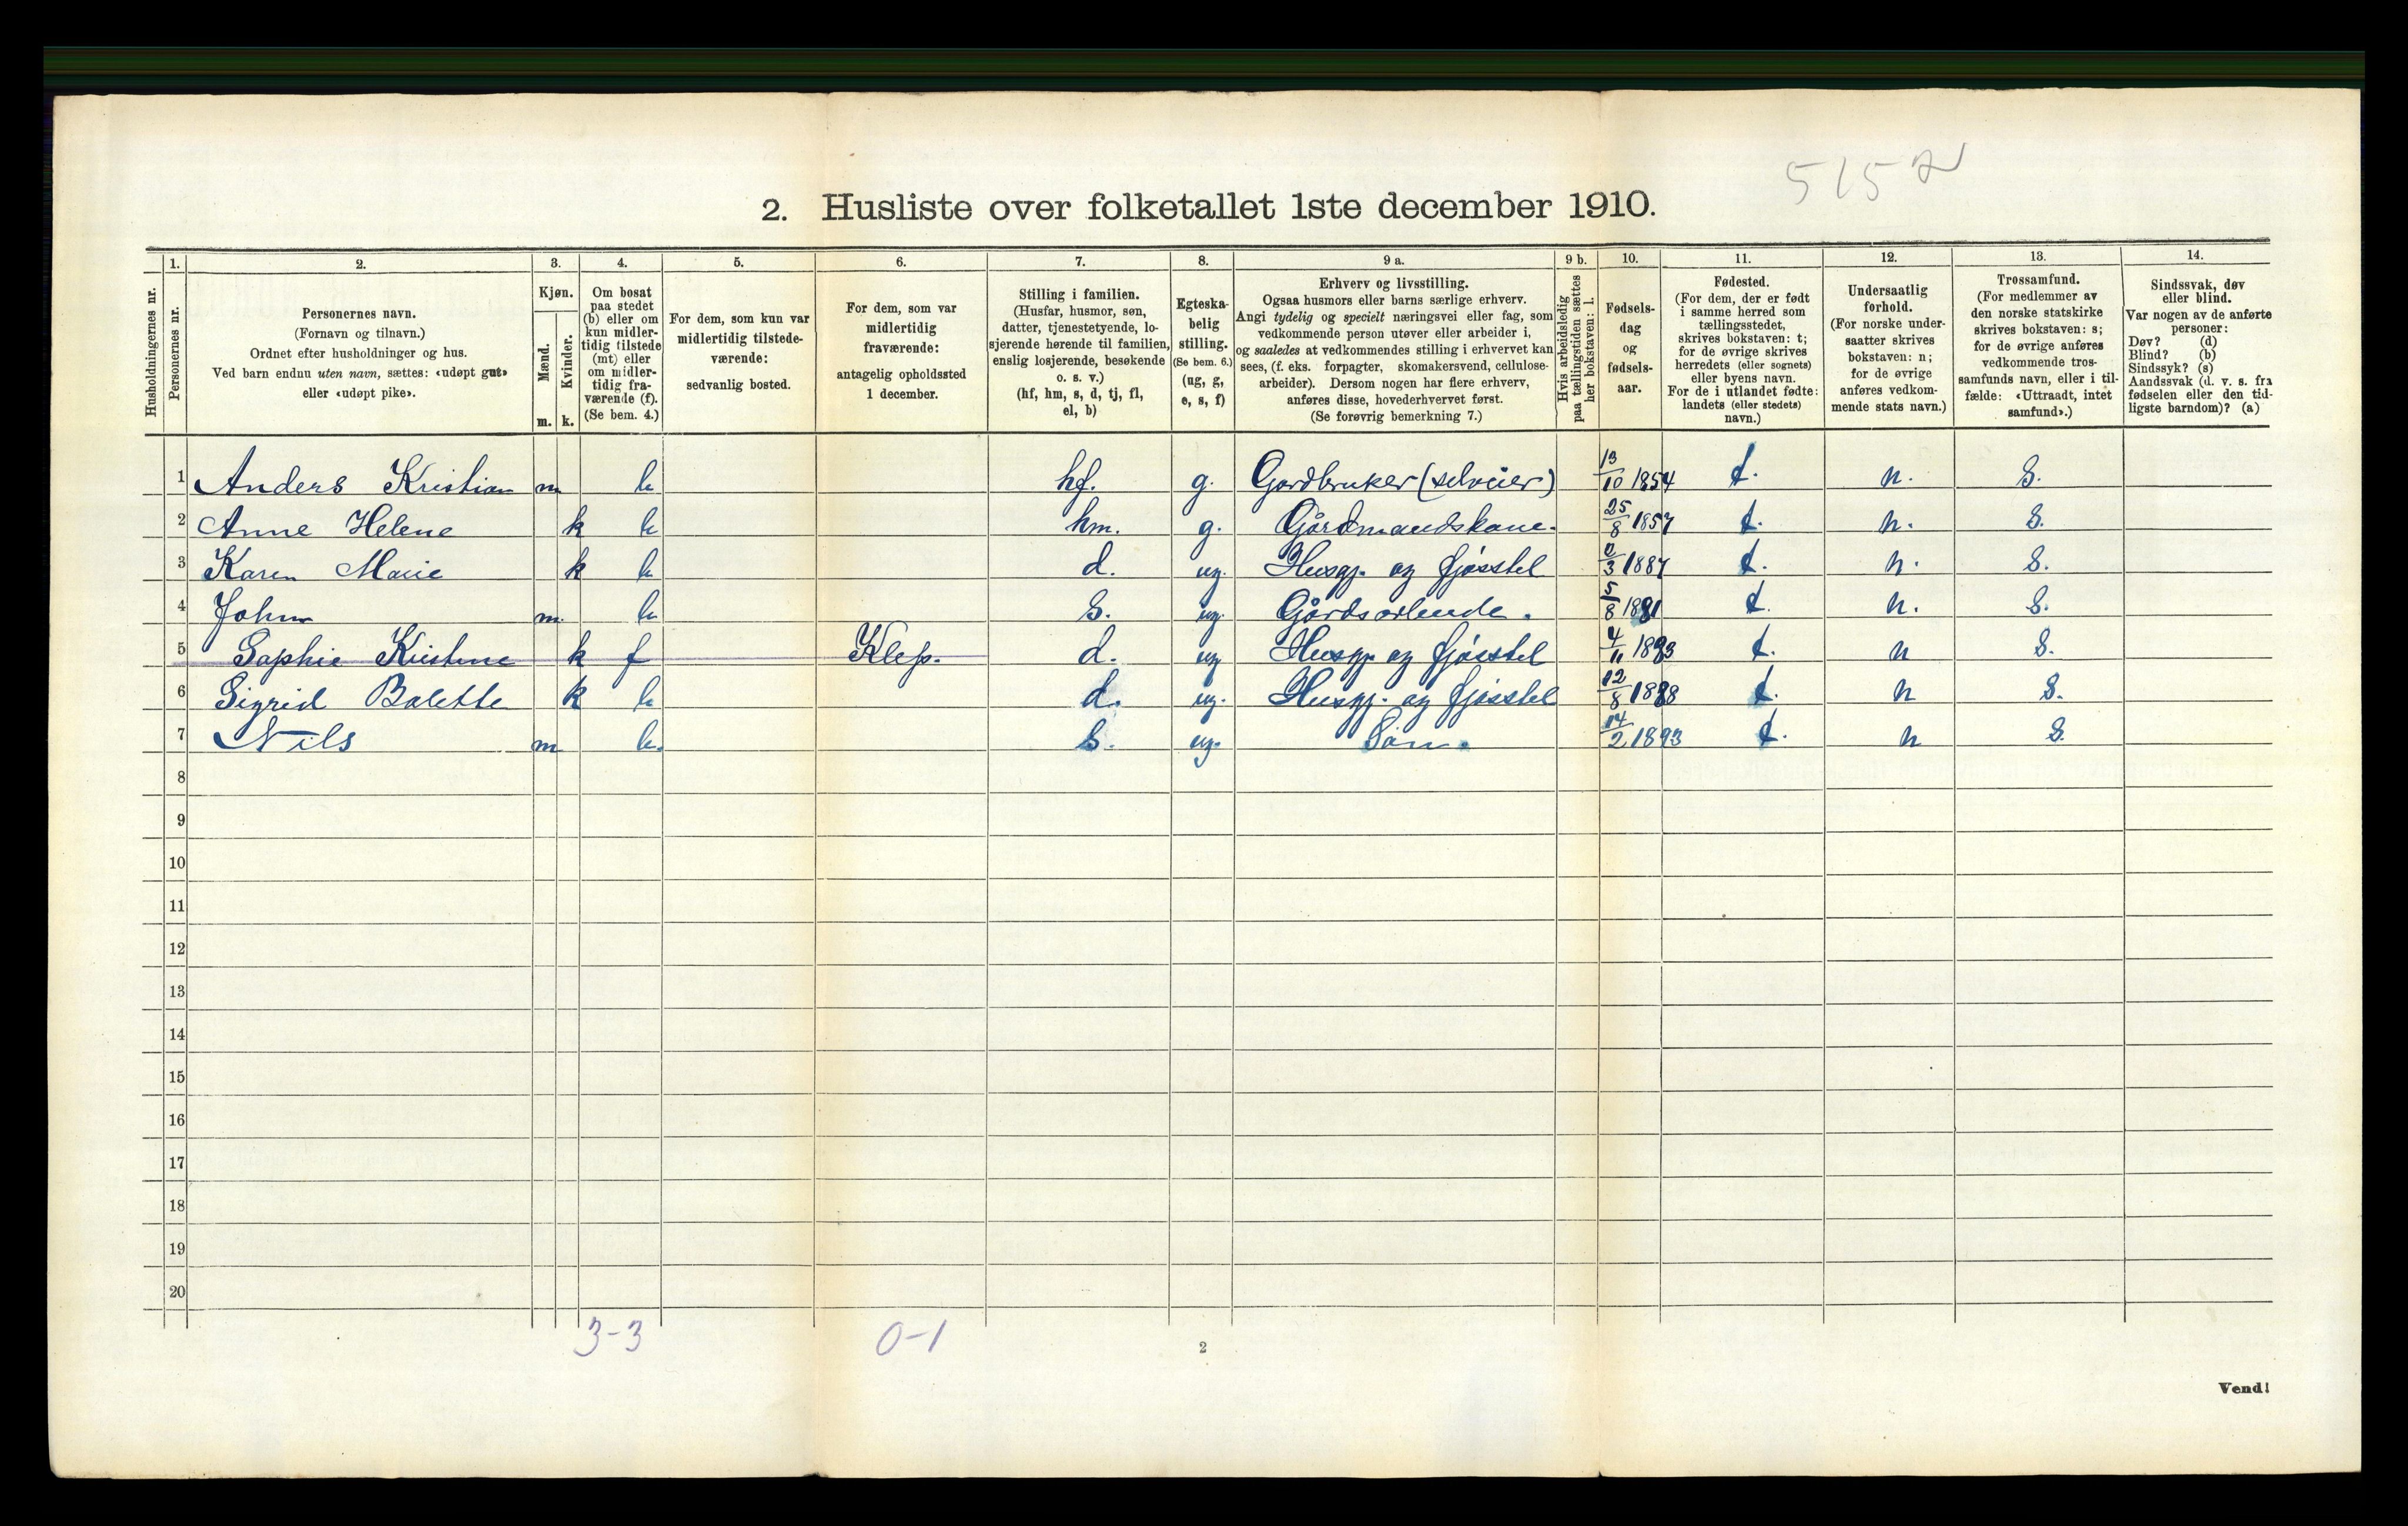 515
2. Husliste over folketallet 1ste december 1910.
1. 2. 3. 4. 5. 6. 7. 8. 9 a. 9 b. 10. 11. 12. 13. 14.
Husholdningernes nr.
Personernes nr.
Personernes navn.
(Fornavn og tilnavn.)
Ordnet efter husholdninger og hus.
Ved barn endnu uten navn, sættes: «udøpt gut»
eller «udøpt pike».
Kjøn.
Mænd.
Kvinder.
m. k.
Om bosat
paa stedet
(b) eller om
kun midler-
tidig tilstede
(mt) eller
om midler-
tidig fra-
værende (f).
(Se bem. 4.)
For dem, som kun var
midlertidig tilstede-
værende:
sedvanlig bosted.
For dem, som var
midlertidig
fraværende:
antagelig opholdssted
1 december.
Stilling i familien.
(Husfar, husmor, søn,
datter, tjenestetyende, lo-
sjerende hørende til familien,
enslig losjerende, besøkende
o. s. v.)
(hf, hm, s, d, tj, fl,
el, b)
Egteska-
belig
stilling.
(Se bem. 6.)
(ug, g,
e, s, f)
Erhverv og livsstilling.
Ogsaa husmors eller barns særlige erhverv.
Angi tydelig og specielt næringsvei eller fag, som
vedkommende person utøver eller arbeider i,
og saaledes at vedkommendes stilling i erhvervet kan
sees, (f. eks. forpagter, skomakersvend, cellulose-
arbeider). Dersom nogen har flere erhverv,
anføres disse, hovederhvervet først.
(Se forøvrig bemerkning 7.)
Hvis arbeidsledig
paa tællingstiden sættes
her bokstaven: l.
Fødsels-
dag
og
fødsels-
aar.
Fødested.
(For dem, der er født
i samme herred som
tællingsstedet,
skrives bokstaven: t;
for de øvrige skrives
herredets (eller sognets)
eller byens navn.
For de i utlandet fødte:
landets (eller stedets)
navn.)
Undersaatlig
forhold.
(For norske under-
saatter skrives
bokstaven: n;
for de øvrige
anføres vedkom-
mende stats navn.)
Trossamfund.
(For medlemmer av
den norske statskirke
skrives bokstaven: s;
for de øvrige anføres
vedkommende tros-
samfunds navn, eller i til-
fælde: «Uttraadt, intet
samfund».)
Sindssvak, døv
eller blind.
Var nogen av de anførte
personer:
Døv? (d)
Blind? (b)
Sindssyk? (s)
Aandssvak (d. v. s. fra
fødselen eller den tid-
ligste barndom)? (a)
1 Anders Kristian m b hf. g. Gordbruker (selveier) 13/10 1854 t. n. S.
2 Anne Helene k b hm. g. Gårdmandskone. 25/8 1857 t. n. S.
3 Karen Marie k b d. ug. Husgj. og fjøsstel /3 1887 t. n. S.
4 John m. b S. ug. Gårdsarbeide. 5/8 1881 t. n. S.
5 Sophie Kristine k f Klep. d. ug Husgj. og fjøsstel 4/11 1883 t. n S.
6 Sigrid Bolette k b d. ug. Husgj. og fjøsstel 12/8 1888 t. n S.
7 Nils m b. S. ug. Søn. 14/2 1893 t. n S.
8
9
10
11
12
13
14
15
16
17
18
19
20
3-3 0-1
2
Vend!